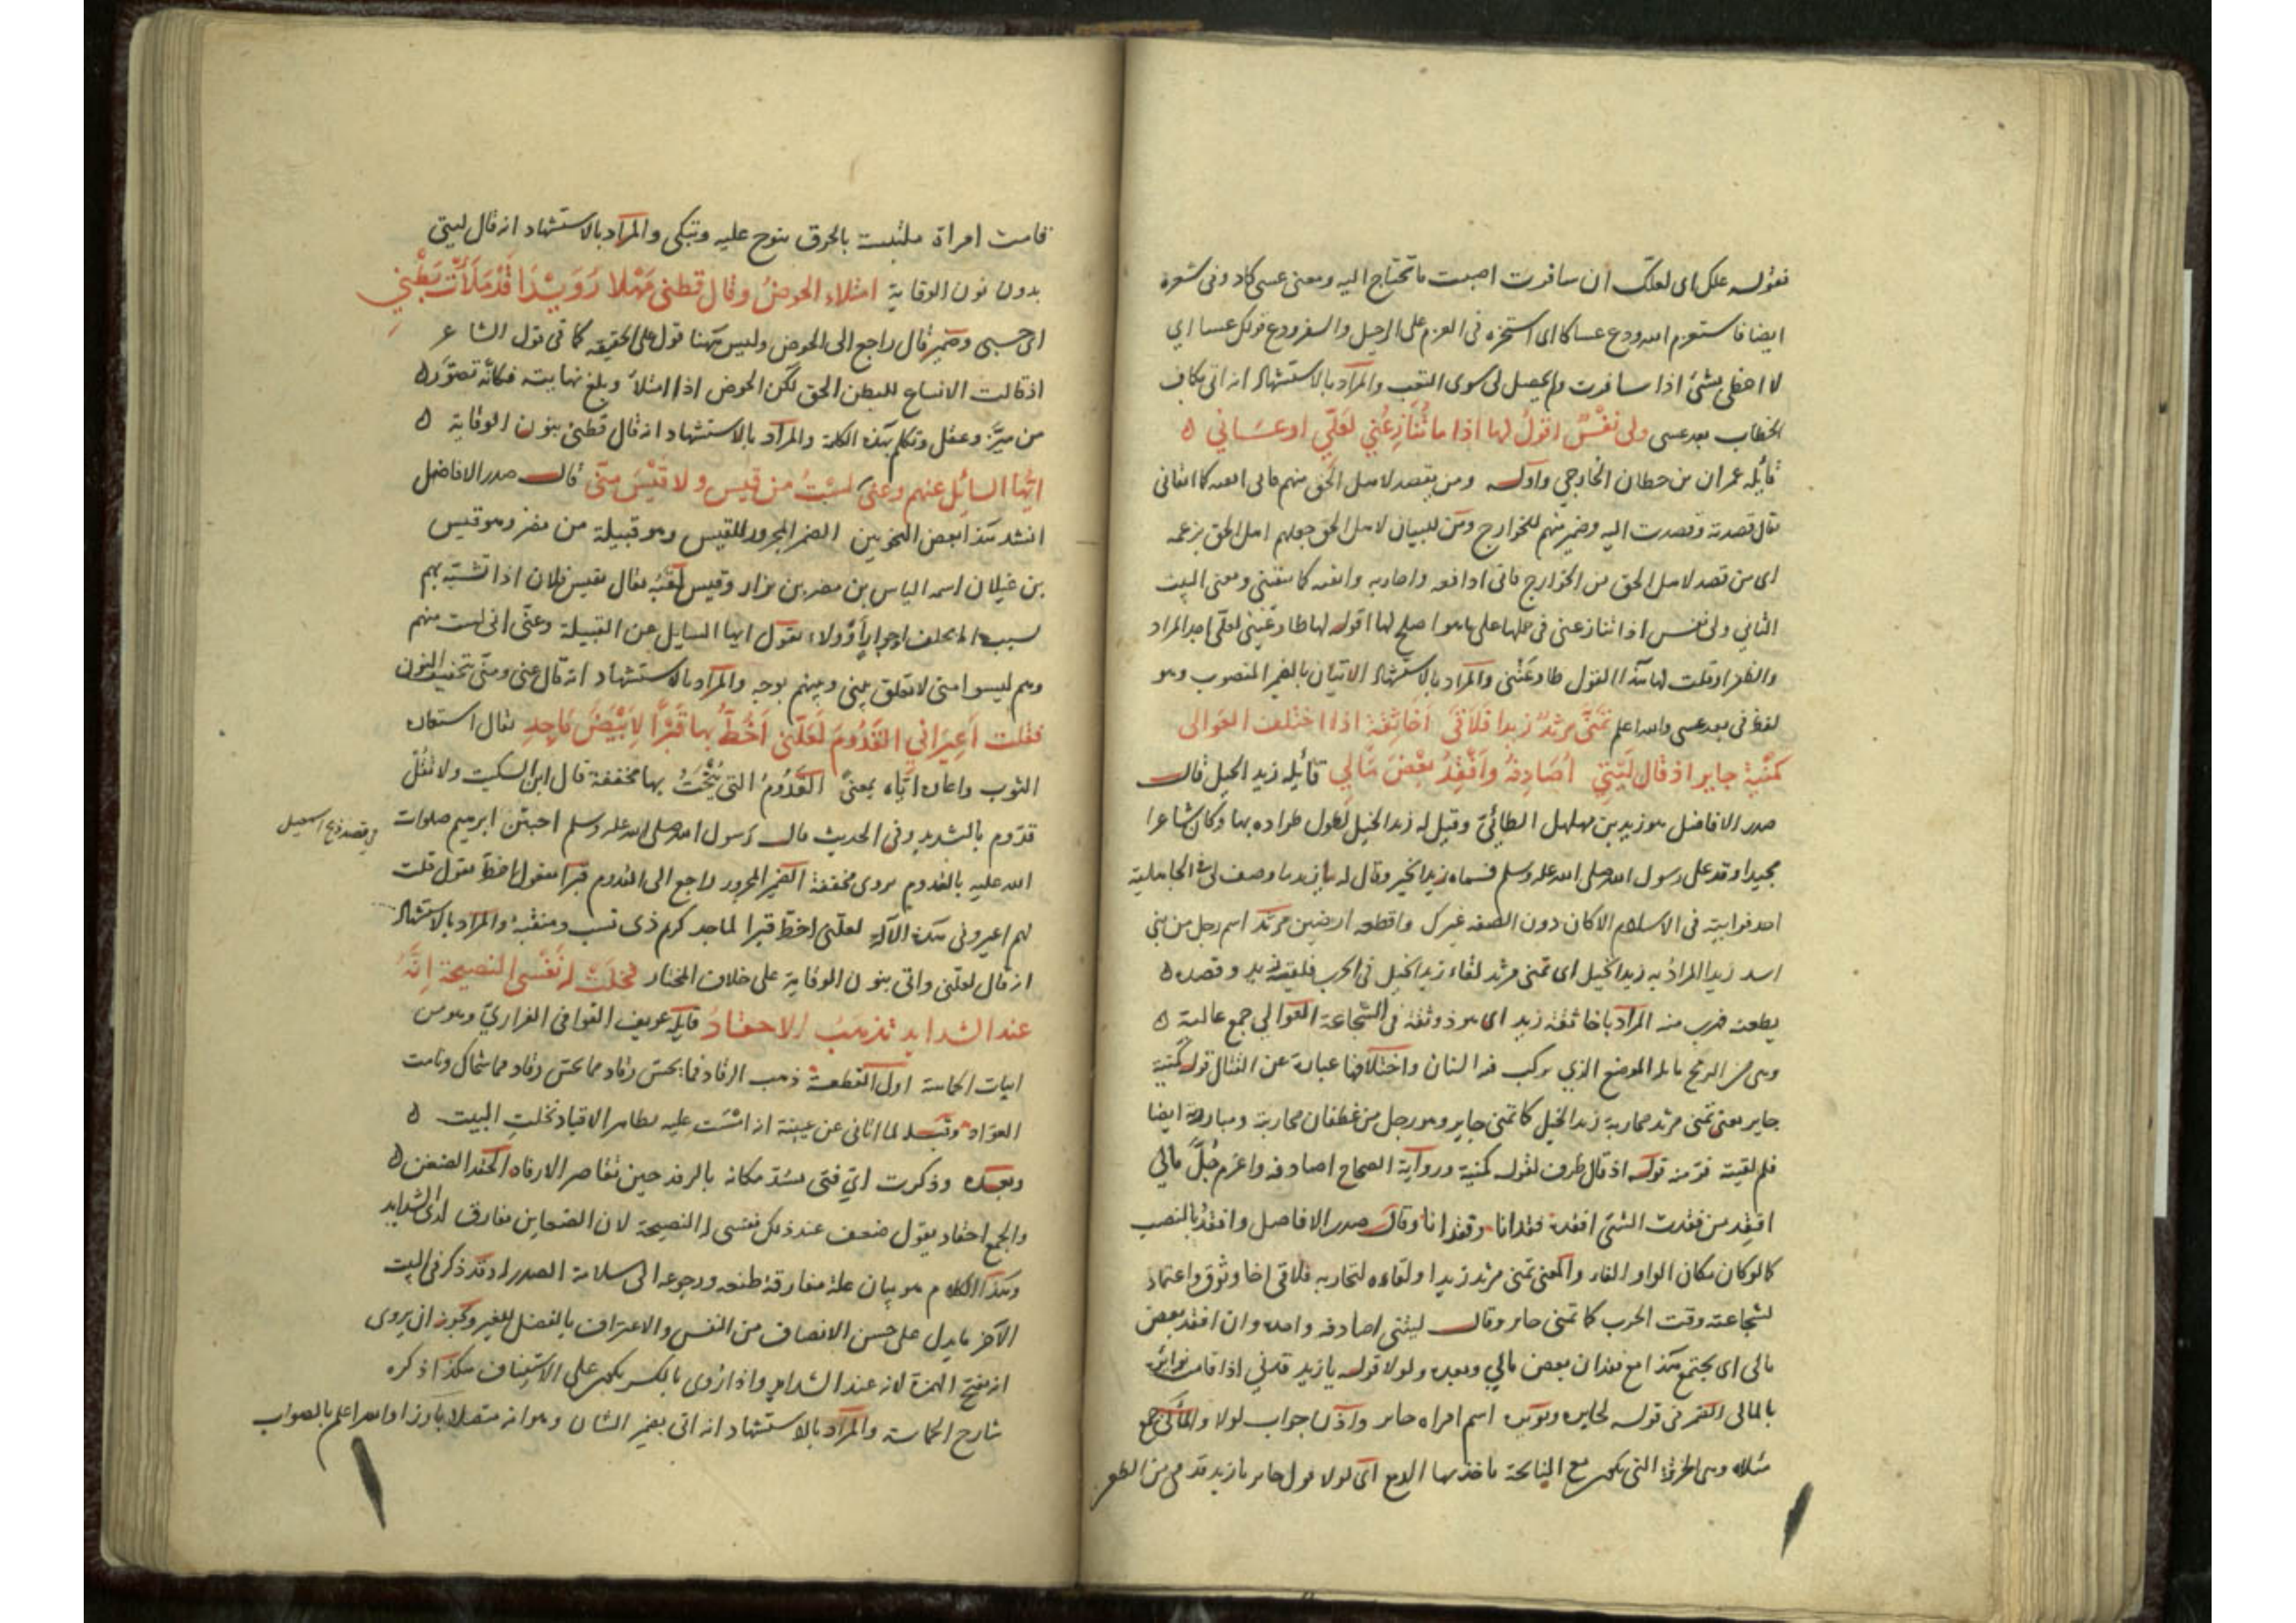 فقوله علك اى لعلك ان سافرت اصبت ما تحتاج اليه ومعنى عسى كاد وفى شعره
ايضا فاستعزم الله ودع عساكا اى استخره فى العزم على الرحيل والسفر ودع قولك عسا اي
لا احظى بشئ اذا سافرت ولم يحصل لى سوى التعب والمراد بالاستشهاد انه اتى بكاف
الخطاب بعد عسى ولى نفْسٌ اقولُ لها اذا ما تُنَازِعُني لعَلّي اوعَسَاني ه
قائله عمران بن حطان الخارجي واوله ومن يقصد لاهل الحق منهم فانى اتقيه كما اتقانى
يقال قصدته وقصدت اليه وضمير منهم للخوارج ومن للبيان لاهل الحق جعلهم اهل الحق بزعمه
اى من قصد لاهل الحق من الخوارج فانى ادافعه واحاربه واتقيه كما يتقينى ومعنى البيت
الثاني ولى نفس اذا تنازعنى فى حملها على ما هو اصلح لها اقول لها طاوعينى لعلّى اجد المراد
والظفر اذ قلت لها هذا القول طاوعَتْنى والمراد بالاستشهاد الاتيان بالضمير المنصوب وهو
لفظ نى بعد عسى والله اعلم تمنّى مرْثدٌ زيدا فلاقى اَخا ثِقَةٍ اذا اختلف العَوالى
كمُنْية جابر اذ قال لَيْتي اُصَادِفُهُ واَفْقِدُ بَعْضَ مَالِي قائله زيد الخيل قال
صدر الافاضل هو زيد بن مهلهل الطائيّ وقيل له زيد الخيل لطول طراده بها وكان شاعرا
مجيدا وفد على رسول الله صلى الله عليه وسلم فسماه زيد الخير وقال له يا زيد ما وصف لى فى الجاهلية
احد فرايته فى الاسلام الا كان دون الصفه غيرك واقطعه ارضين مرثد اسم رجل من بنى
اسد زيدا المراد به زيد الخيل اى تمنى مرثد لقاء زيد الخيل فى الحرب فلقيه زيد وقصده ه
بطعنه فهرب منه المراد باخا ثقة زيد اى هو ذو ثقة فى الشجاعة العوالي جمع عالية ه
وهى من الرمح ما يلى الموضع الذي يركب فيه السنان واختلافها عبارة عن القتال قوله كمنية
جابر يعنى تمنى مرثد محاربة زيد الخيل كما تمنى جابر وهو رجل من غطفان محاربته ومبارزته ايضا
فلما لقيته فرّ منه قوله اذ قال ظرف لقوله كمنية ورواية الصحاح اصادفه واغرم جُلّ مالي
افقِد من فقدت الشئ افقده فقدانا وفقدانا وقال صدر الافاضل وافقدَ بالنصب
كما لو كان مكان الواو الفاء والمعنى تمنى مرثد زيدا ولقاءه لتحاربه فلاقى اخا وثوق واعتماد
لشجاعته وقت الحرب كما تمنى جابر وقال ليتنى اصادفه واجده وان افقد بعض
مالى اى يجتمع هذا مع فقدان بعض مالي وبعده ولولا قوله يا زيد قدني اذا قامت نوائره
بالمالى الضمير فى قوله لجابر ونويره اسم امراه جابر واذن جواب لولا والمآلى جمع
مئلاه وهى الخرقة التى تكون مع النايحة تاخذ بها الدمع اى لولا قول جابر يا زيد قدنى من الطعن
قامت امراة ملتبست بالخرق ينوح عليه وتبكى والمراد بالاستشهاد انه قال ليتى
بدون نون الوقاية امتلاء الحوضُ وقال قطنى مَهْلا رُوَيْدًا قَدْ مَلَأتَ بَطْنِي
اى حسبى وضمير قال راجع الى الحوض وليس ههنا قول على الحقيقه كما فى قول الشاعر
اذ قالت الانساع للبطن الحق لكن الحوض اذا امتلأ وبلغ نهايته فكأنه تصوّر ه
من ميّز وعقل وتكلم بهذه الكلمة والمراد بالاستشهاد انه قال قطنى بنون الوقاية ه
ايّها السائل عنهم وعنى لسْتُ من قيس ولا قيْسَ منى قال صدر الافاضل
انشد هذا بعض النحويين الضمير المجرور للقيس وهو قبيلة من مضر وهو قيس
بن غيلان اسمه الياس بن مضر بن نزار وقيس لقبُه يقال تقيس فلان اذا تشبّه بهم
بسبب اما بحلف او جوار او ولاء يقول ايها السايل عن القبيلة وعنّى انى لست منهم
وهم ليسوا منى لا تعلق بينى وبينهم بوجه والمراد بالاستشهاد انه قال عنى ومنى بتخفيف النون
فقلت اَعِيراني القَدُومَ لعَلّنى اَخُطُّ بها قَبْرًا لِاَبْيَضَ مَاجِدِ يقال استعاره
الثوب واعاره ايّاه بمعنىً القَدُومُ التى يُنْحَتُ بها مخففة قال ابن السكيت ولا تقُلْ
قدّوم بالتشديد وفى الحديث قال رسول الله صلى الله عليه وسلم اختتن ابرهيم صلوات
فى قصه ذبح اسمعيل
الله عليه بالقدوم يروى مخففة الضمير المجرور راجع الى القدوم قبرا مفعول اخط يقول قلت
لهم اعيرونى هذه الآلة لعلّنى اخطّ قبرا لماجد كرم ذى نسب ومنقبة والمراد بالاستشهاد
انه قال لعلّنى واتى بنون الوقاية على خلاف المختار نخلَتْ له نفْسى النصيحة اِنّهُ
عند الشدايد تذهَبُ الاحقادُ قايله عويف القوافى الفزاريّ وهو من
ابيات الحماسة اول القطعة ذهب الرقاد فما يحسّ رقاد مما شجاك ونامت
العوّاد وقبله لما اتانى عن عيينة انه امست عليه تظاهر الاقياد نخلت البيت ه
وبعده وذكرت ايّ فتى يسُدّ مكانه بالرفد حين تقاصر الارفاد الحقد الضغن ه
والجمع احقاد يقول ضعف عند ذلك نفسى له النصيحة لان الضغاين مفارق لدى الشدايد
وهذا الكلام هو بيان علة مفارقة ضغنه ورجوعه الى سلامة الصدر له وقد ذكر فى البيت
الآخر ما يدل على حسن الانصاف من النفس والاعتراف بالفضل للغير ويجوز ان يروى
انه بفتح الهمزة لانه عند الشدايد واذا رُوى بالكسر يكون على الاستيناف هكذا ذكره
شارح الحماسة والمراد بالاستشهاد انه اتى بضمير الشان وهو انه متصلا بارزا والله اعلم بالصواب